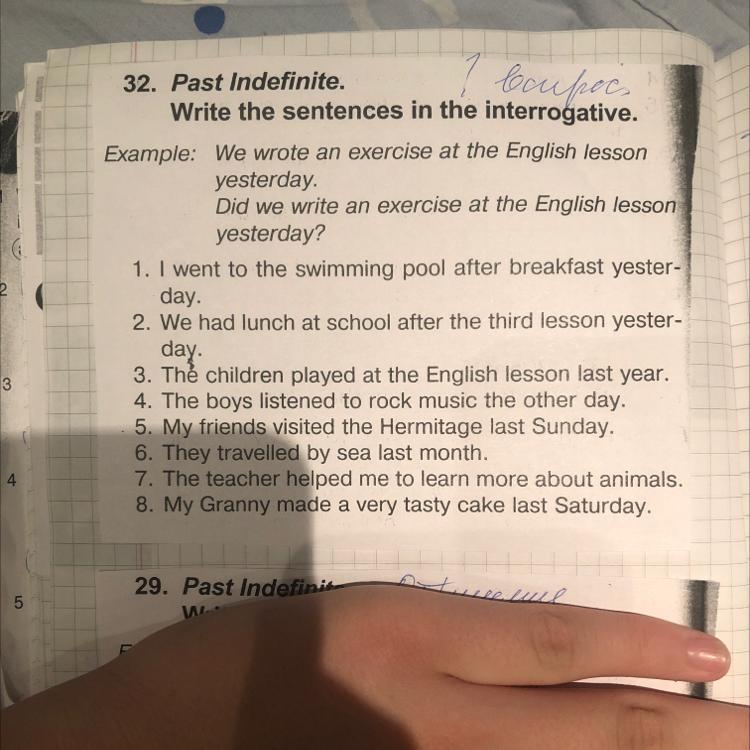 ? Вопрос.
32. Past Indefinite.
Write the sentences in the interrogative.
Example: We wrote an exercise at the English lesson
yesterday.
Did we write an exercise at the English lesson
yesterday?
1. I went to the swimming pool after breakfast yester-
day.
2. We had lunch at school after the third lesson yester-
day.
3. The children played at the English lesson last year.
4. The boys listened to rock music the other day.
5. My friends visited the Hermitage last Sunday.
6. They travelled by sea last month.
7. The teacher helped me to learn more about animals.
8. My Granny made a very tasty cake last Saturday.
29. Past Indefinite
2
3
4
5